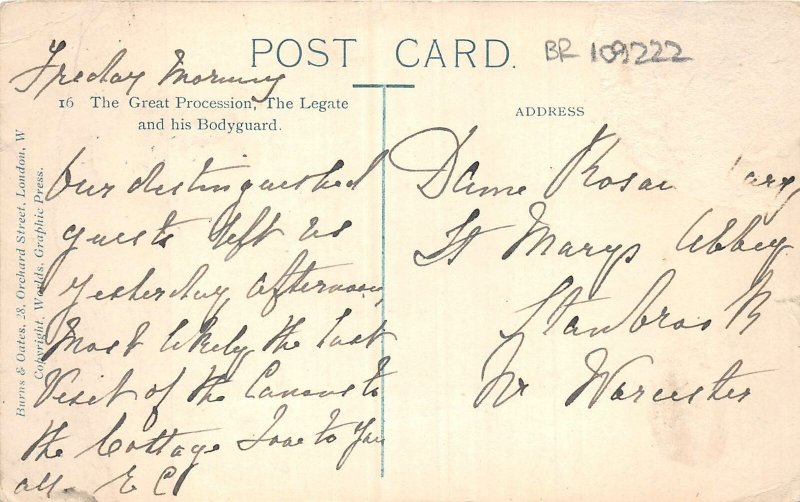 POST CARD.
BR 109222
Friday Morning
16 The Great Procession, The Legate
and his Bodyguard.
Burns & Oates, 28, Orchard Street, London, W
Copyright, Worlds, Graphic Press.
Our distinguished
guests left us
yesterday afternoon,
Most likely the last
Visit of the Canons to
the Cottage Love to you
all - E C
ADDRESS
Dame
St Marys Abbey
Stanbrook
Nr Worcester